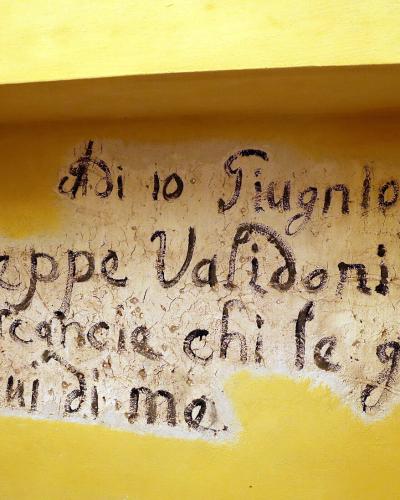 Adi 10 Giugnlo
eppe Validoni
rcancie chi le g
ui di me